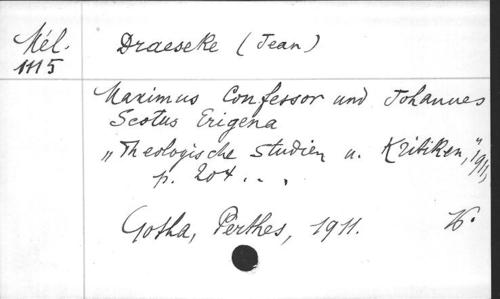 Mél.
1115
Draeseke (Jean)
Maximus Confessor und Johannes
Scotus Erigena
„Theologische Studien u. Kritiken," 1911,
p. 204 . . .
Gotha, Perthes, 1911.